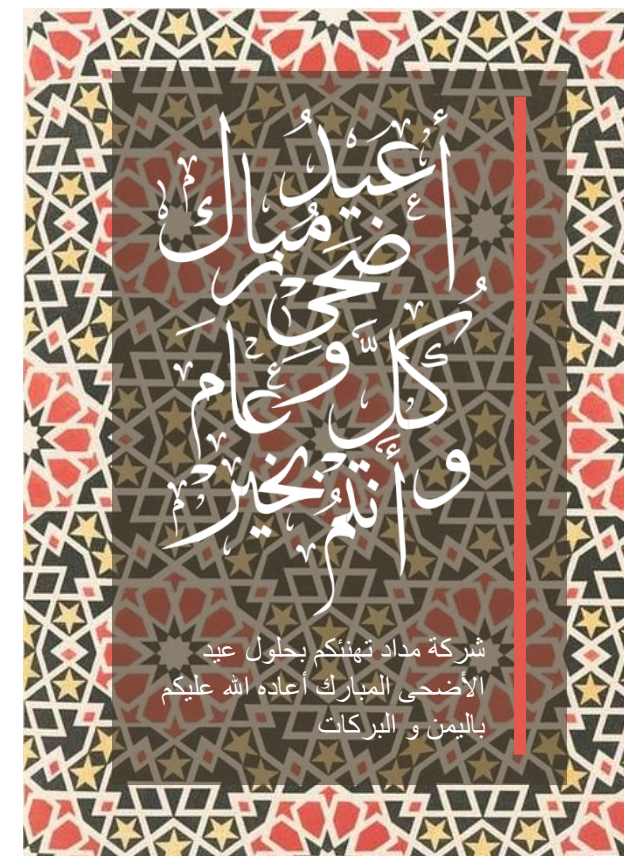 عيدُ أضحَى مُبارك
وَكُلَّ عام
وأنتمُ بخير
شركة مداد تهنئكم بحلول عيد
الأضحى المبارك أعاده الله عليكم
باليمن و البركات